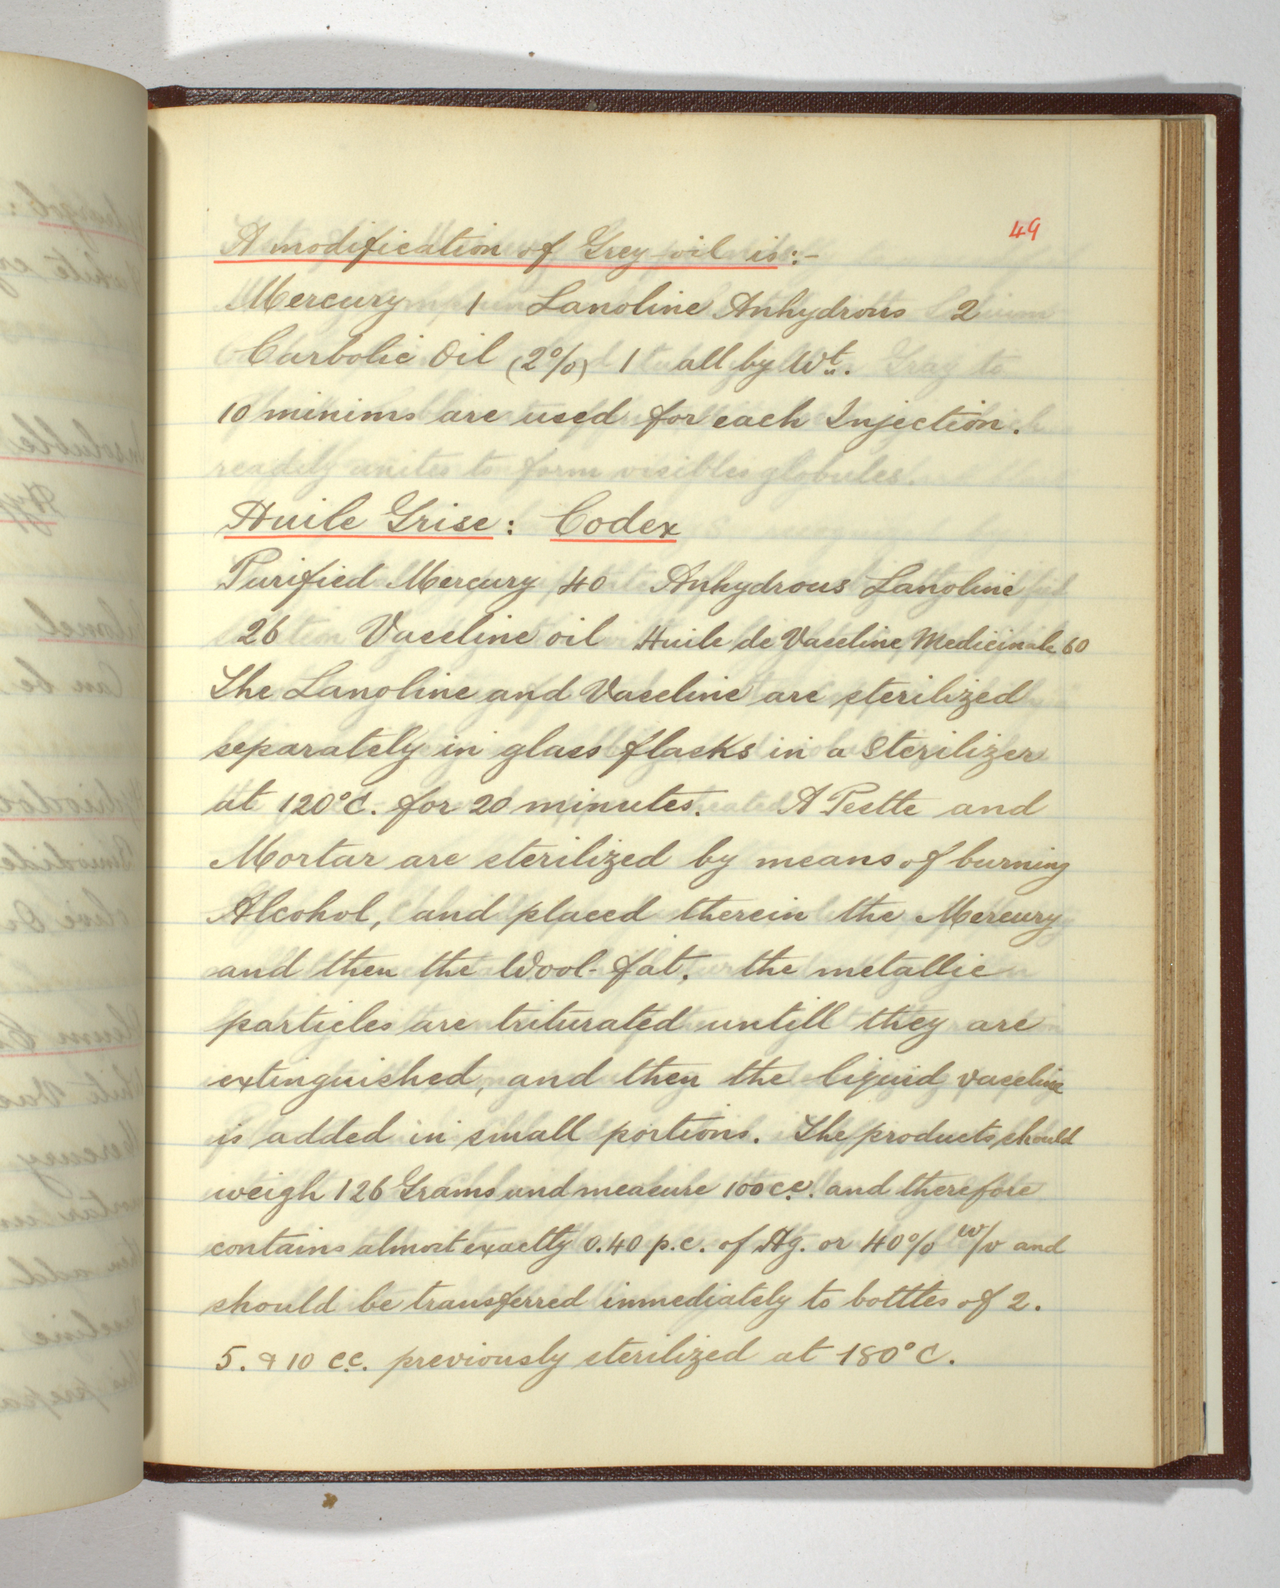 49
A modification of Grey oil is:-
Mercury 1 Lanoline Anhydrous 2
Carbolic Oil (2%) 1 all by Wt.
10 minims are used for each Injection.
Huile Grise: Codex
Purified Mercury 40 Anhydrous Lanoline
26 Vaseline oil Huile de Vaseline Medicinale 60
The Lanoline and Vaseline are sterilized
separately in glass flasks in a Sterilizer
at 120°C. for 20 minutes. A Pestle and
Mortar are sterilized by means of burning
Alcohol, and placed therein the Mercury
and then the Wool-fat. the metallic
particles are triturated untill they are
extinguished, and then the liquid vaseline
is added in small portions. The products should
weigh 126 Grams and measure 100 c.c. and therefore
contains almost exactly 0.40 p.c. of Hg. or 40% w/v and
should be transferred immediately to bottles of 2.
5. & 10 c.c. previously sterilized at 180°C.